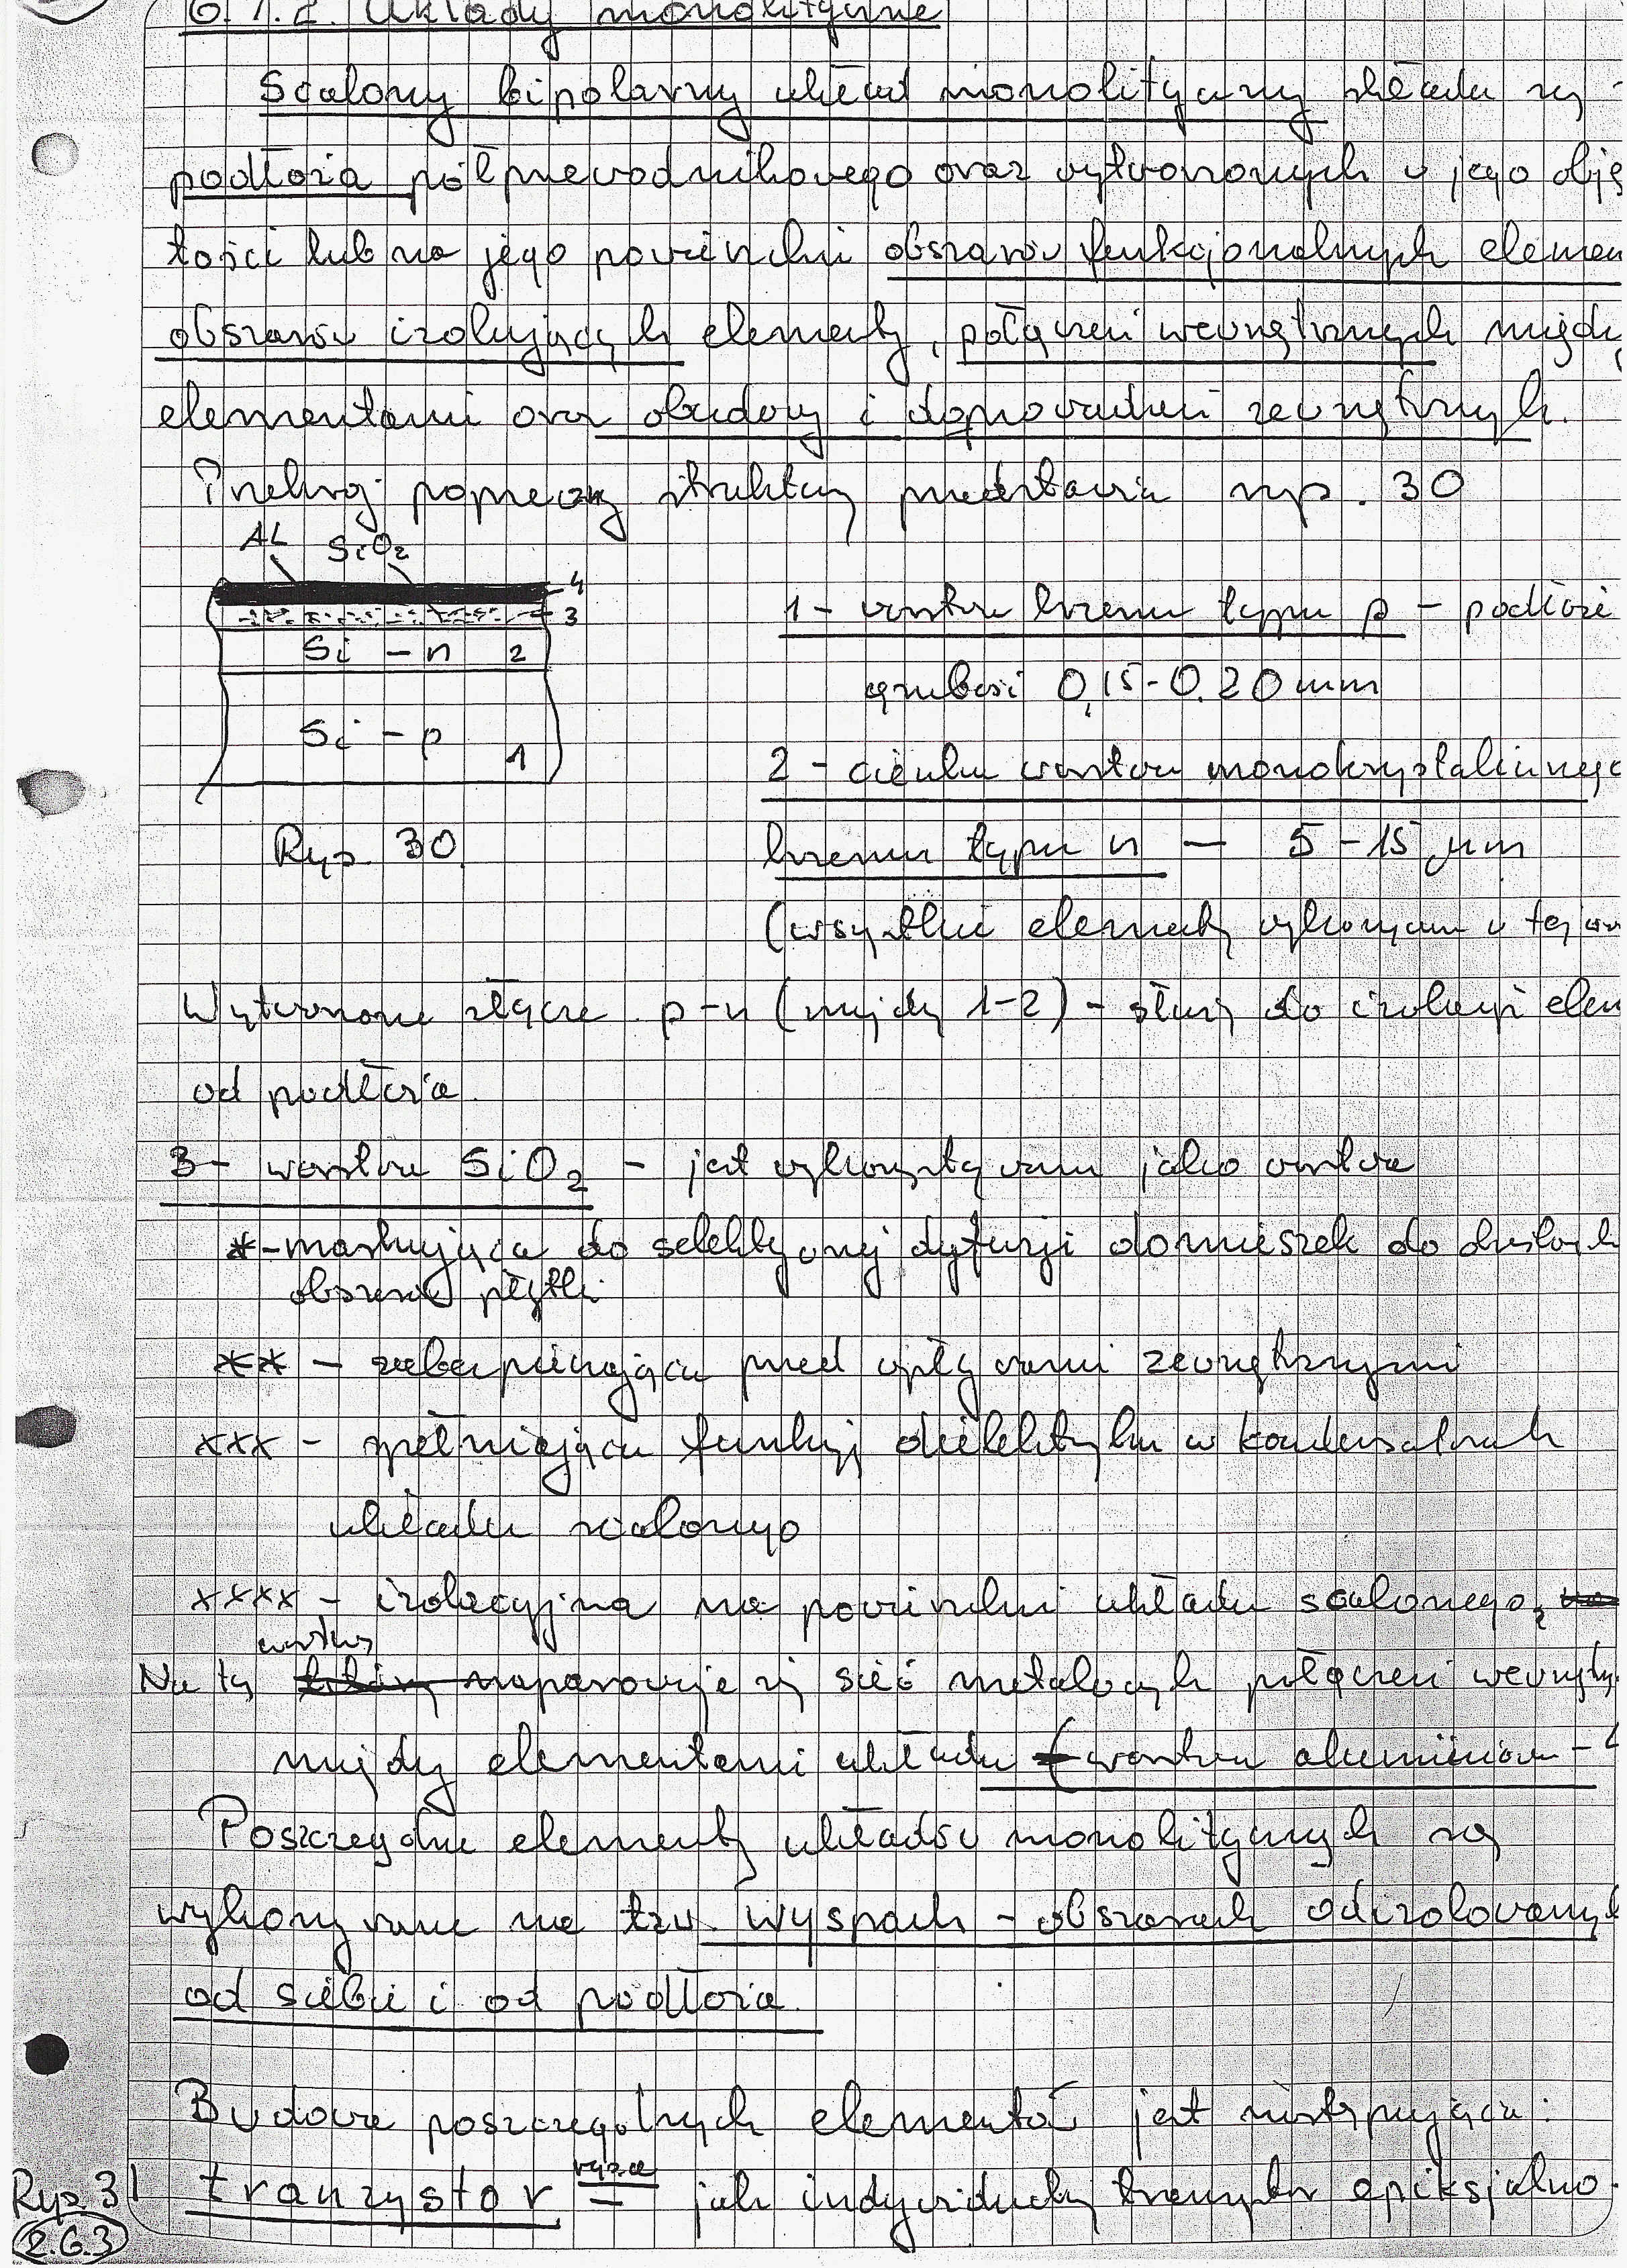 6.1.2. Układy monolityczne
Scalony bipolarny układ monolityczny składa się
podłoża półprzewodnikowego oraz wytworzonych w jego obję
tości lub na jego powierzchni obszarów funkcjonalnych elemen
obszarów izolujących elementy, połączeń wewnętrznych między
elementami oraz obudowy i doprowadzeń zewnętrznych.
Przekrój poprzeczny struktury przedstawia rys. 30
AL SiO2
4
3
Si - n 2
Si - p 1
Rys. 30.
1 - warstwa krzemu typu p - podłoże
grubość 0,15-0.20 mm
2 - cienka warstwa monokrystalicznego
krzemu typu n — 5-15 µm
(wszystkie elementy wykonywane w tej
Wytworzone złącze p-n (między 1-2) - służy do izolacji elem
od podłoża.
3- warstwa SiO2 - jest wykorzystywana jako warstwa
*-maskująca do selektywnej dyfuzji domieszek do
obszarów płytki
** - zabezpieczająca przed wpływami zewnętrznymi
xxx - spełniająca funkcję dielektryka w kondensatorach
układu scalonego
xxxx - izolacyjna na powierzchni układu scalonego,
warstwę
Na tę naparowuje się sieć metalowych połączeń wewnętrz
między elementami układu (warstwa aluminiowa -
Poszczególne elementy układów monolitycznych są
wykonywane na tzw. wyspach - obszarach odizolowanych
od siebie i od podłoża.
Budowa poszczególnych elementów jest następująca:
Rys. 31 tranzystor - jak indywidualny tranzystor epiksjalno-
2.6.3